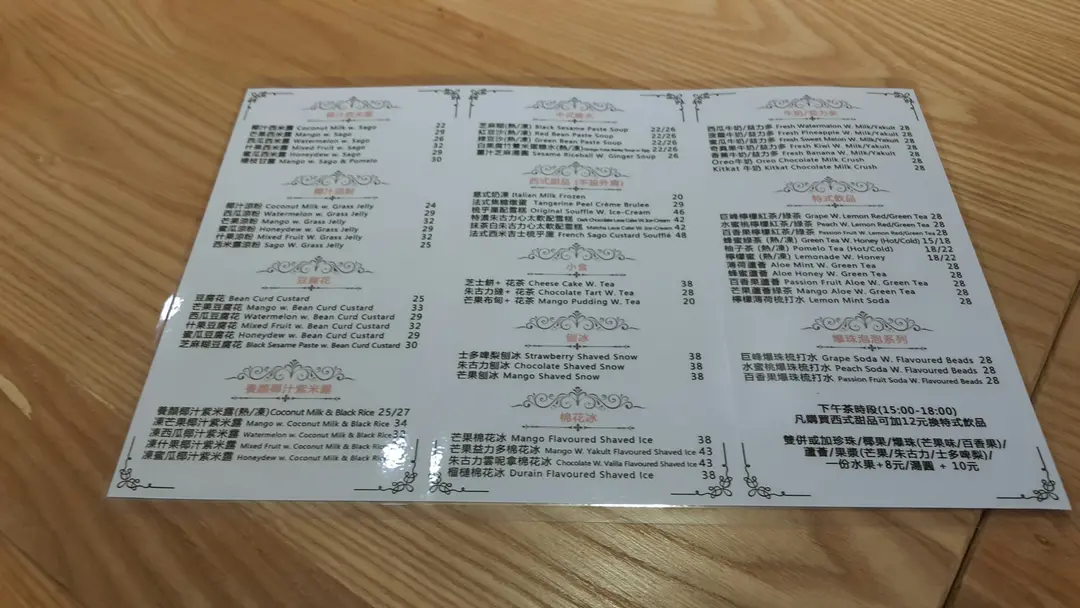 椰汁西米露
椰汁西米露 Coconut Milk w. Sago 22
芒果西米露 Mango w. Sago 29
西瓜西米露 Watermelon w. Sago 26
什果西米露 Mixed Fruit w. Sago 32
蜜瓜西米露 Honeydew w. Sago 29
楊枝甘露 Mango w. Sago & Pomelo 30
椰汁涼粉
椰汁涼粉 Coconut Milk w. Grass Jelly 24
西瓜涼粉 Watermelon w. Grass Jelly 29
芒果涼粉 Mango w. Grass Jelly 32
蜜瓜涼粉 Honeydew w. Grass Jelly 29
什果涼粉 Mixed Fruit w. Grass Jelly 32
西米涼粉 Sago W. Grass Jelly 25
豆腐花
豆腐花 Bean Curd Custard 25
芒果豆腐花 Mango w. Bean Curd Custard 33
西瓜豆腐花 Watermelon w. Bean Curd Custard 29
什果豆腐花 Mixed Fruit w. Bean Curd Custard 32
蜜瓜豆腐花 Honeydew w. Bean Curd Custard 29
芝麻糊豆腐花 Black Sesame Paste w. Bean Curd Custard 30
養顏椰汁紫米露
養顏椰汁紫米露(熱/凍)Coconut Milk & Black Rice 25/27
凍芒果椰汁紫米露 Mango w. Coconut Milk & Black Rice 34
凍西瓜椰汁紫米露 Watermelon w. Coconut Milk & Black Rice
凍什果椰汁紫米露 Mixed Fruit w. Coconut Milk & Black Rice
凍蜜瓜椰汁紫米露 Honeydew w. Coconut Milk & Black Rice
中式糖水
芝麻糊(熱/凍) Black Sesame Paste Soup 22/26
紅豆沙(熱/凍) Red Bean Paste Soup 22/26
綠豆沙(熱/凍) Green Bean Paste Soup 22/26
白果腐竹薏米糖糖水(熱/凍) 22/26
薑汁芝麻湯圓 Sesame Riceball W. Ginger Soup 26
西式甜品 (不設外賣)
意式奶凍 Italian Milk Frozen 20
法式焦糖燉蛋 Tangerine Peel Crème Brulee 29
梳乎厘配雪糕 Original Souffle W. Ice-Cream 46
特濃朱古力心太軟配雪糕 Dark Chocolate Lava Cake W. Ice-Cream 42
抹茶白朱古力心太軟配雪糕 Matcha Lava Cake W. Ice-Cream 42
法式西米吉士梳乎厘 French Sago Custard Soufflé 48
小食
芝士餅+ 花茶 Cheese Cake W. Tea 38
朱古力撻+ 花茶 Chocolate Tart W. Tea 28
芒果布甸+ 花茶 Mango Pudding W. Tea 20
刨冰
士多啤梨刨冰 Strawberry Shaved Snow 38
朱古力刨冰 Chocolate Shaved Snow 38
芒果刨冰 Mango Shaved Snow 38
棉花冰
芒果棉花冰 Mango Flavoured Shaved Ice 38
芒果益力多棉花冰 Mango W. Yakult Flavoured Shaved Ice 43
朱古力雲呢拿棉花冰 Chocolate W. Vailla Flavoured Shaved Ice 43
榴槤棉花冰 Durain Flavoured Shaved Ice 38
牛奶/益力多
西瓜牛奶/益力多 Fresh Watermelon W. Milk/Yakult 28
菠蘿牛奶/益力多 Fresh Pineapple W. Milk/Yakult 28
蜜瓜牛奶/益力多 Fresh Sweet Melon W. Milk/Yakult 28
奇異果牛奶/益力多 Fresh Kiwi W. Milk/Yakult 28
香蕉牛奶/益力多 Fresh Banana W. Milk/Yakult 28
Oreo牛奶 Oreo Chocolate Milk Crush 28
Kitkat 牛奶 Kitkat Chocolate Milk Crush 28
特式飲品
巨峰檸檬紅茶/綠茶 Grape W. Lemon Red/Green Tea 28
水蜜桃檸檬紅茶/綠茶 Peach W. Lemon Red/Green Tea 28
百香果檸檬紅茶/綠茶 Passion Fruit W. Lemon Red/Green Tea 28
蜂蜜綠茶 (熱/凍) Green Tea W. Honey (Hot/Cold) 15/18
柚子茶 (熱/凍) Pomelo Tea (Hot/Cold) 18/22
檸檬蜜 (熱/凍) Lemonade W. Honey 18/22
薄荷蘆薈 Aloe Mint W. Green Tea 28
蜂蜜蘆薈 Aloe Honey W. Green Tea 28
百香果蘆薈 Passion Fruit Aloe W. Green Tea 28
芒果蘆薈綠茶 Mango Aloe W. Green Tea 28
檸檬薄荷梳打水 Lemon Mint Soda 28
爆珠泡泡系列
巨峰爆珠梳打水 Grape Soda W. Flavoured Beads 28
水蜜桃爆珠梳打水 Peach Soda W. Flavoured Beads 28
百香果爆珠梳打水 Passion Fruit Soda W. Flavoured Beads 28
下午茶時段(15:00-18:00)
凡購買西式甜品可加12元換特式飲品
雙併或加珍珠/椰果/爆珠(芒果味/百香果)/
蘆薈/果漿(芒果/朱古力/士多啤梨)/
一份水果+8元/湯圓 + 10元